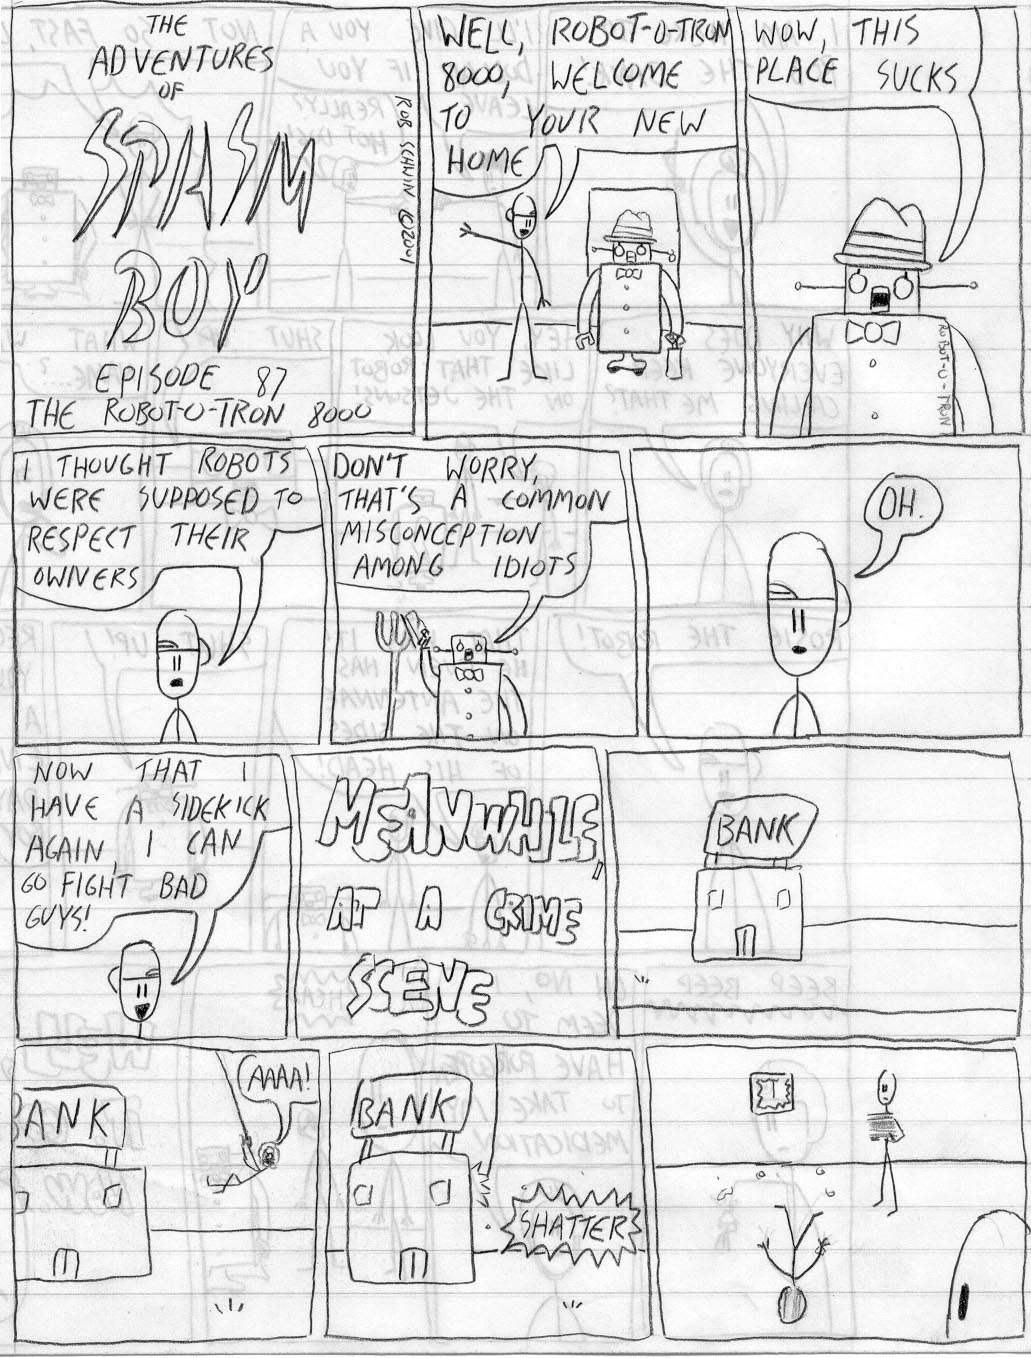 THE
ADVENTURES
OF
SPASM
BOY
EPISODE 87
THE ROBOT-O-TRON 8000
ROB SCHWIN ©2001
WELL, ROBOT-O-TRON
8000, WELCOME
TO YOUR NEW
HOME
WOW, THIS
PLACE SUCKS
ROBOT-O-TRON
I THOUGHT ROBOTS
WERE SUPPOSED TO
RESPECT THEIR
OWNERS
DON'T WORRY,
THAT'S A COMMON
MISCONCEPTION
AMONG IDIOTS
OH.
NOW THAT I
HAVE A SIDEKICK
AGAIN, I CAN
GO FIGHT BAD
GUYS!
MEANWHILE,
AT A CRIME
SCENE
BANK
BANK
AAAA!
BANK
SHATTER